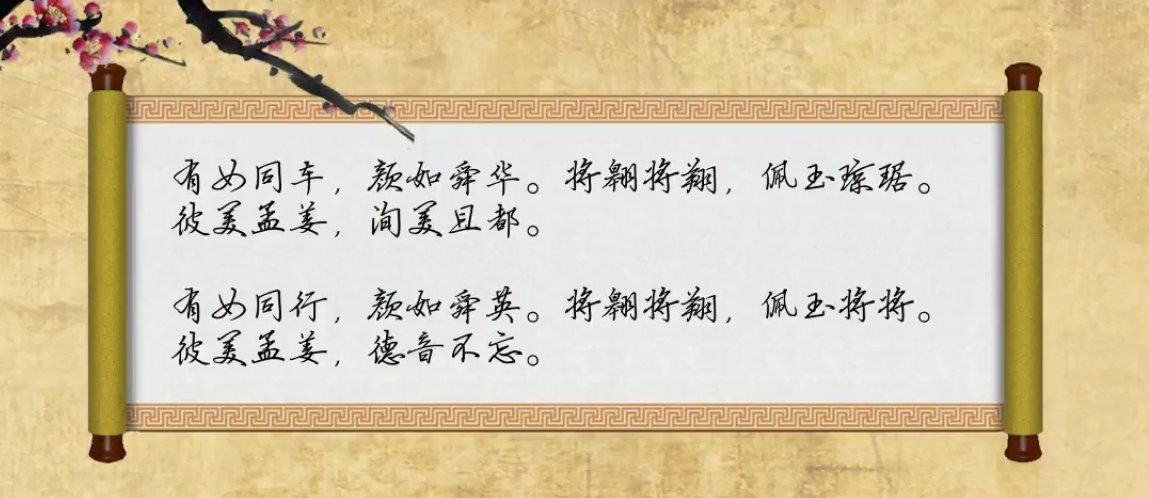 有女同车，颜如舜华。将翱将翔，佩玉琼琚。
彼美孟姜，洵美且都。
有女同行，颜如舜英。将翱将翔，佩玉将将。
彼美孟姜，德音不忘。